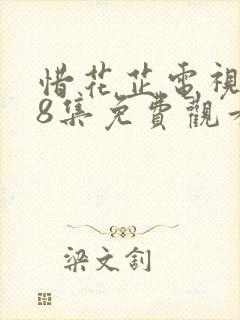 惜花芷電視
8集免費觀看
梁文釗